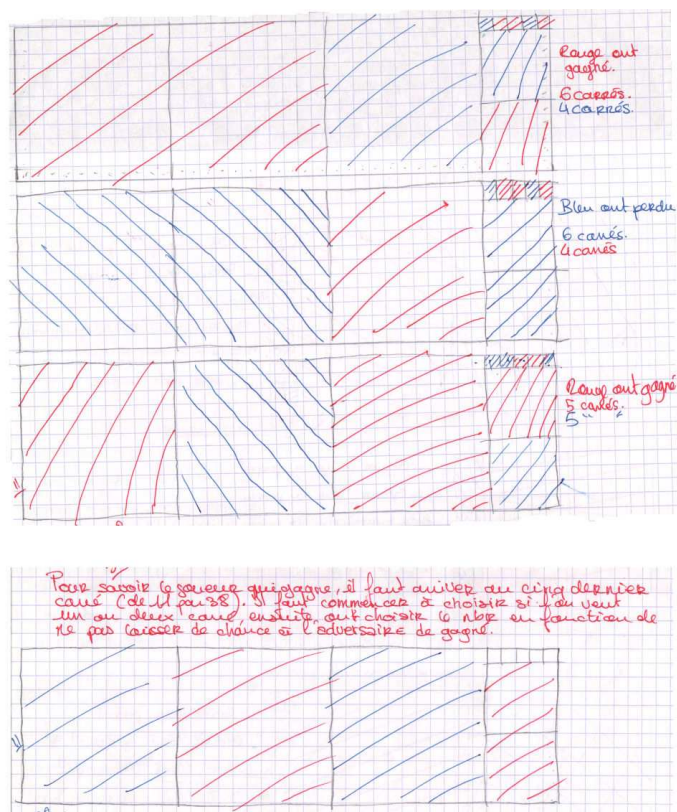 Rouge ont
gagné.
6 carrés.
4 carrés.
Bleu ont perdu
6 carrés.
4 carrés
Rouge ont gagné
5 carrés.
5 " "
11
Pour savoir le joueur qui gagne, il faut arriver au cinq dernier
carré (de 11 par 38). Il faut commencer à choisir si l'on veut
un ou deux carré, ensuite, ont choisir le nbr en fonction de
ne pas laisser de chance à l'adversaire de gagné.
11